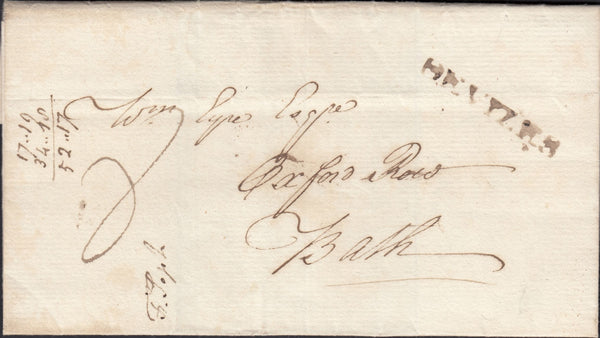 DEVIZES
Wm Eyre Esqre
Oxford Row
Bath
17..19
34..18
52..17